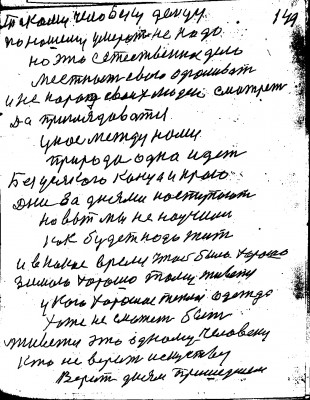 149
Такому человеку
по нашему умереть не надо
но это естественно дело
местность свою
и не народ своих людей смотреть
да приглядоваться
у нас между нами
природа одна идет
Без усякого конца и краю
Дни за днями наступают
но вот мы не научили
как будет надо жить
и в какое время чтоб было хорошо
зимою хорошо тому живет
у кого хорошая теплая одежда
тоже не сможет быть
это одному человеку
кто не верит искуству
Верит дням пришедшем